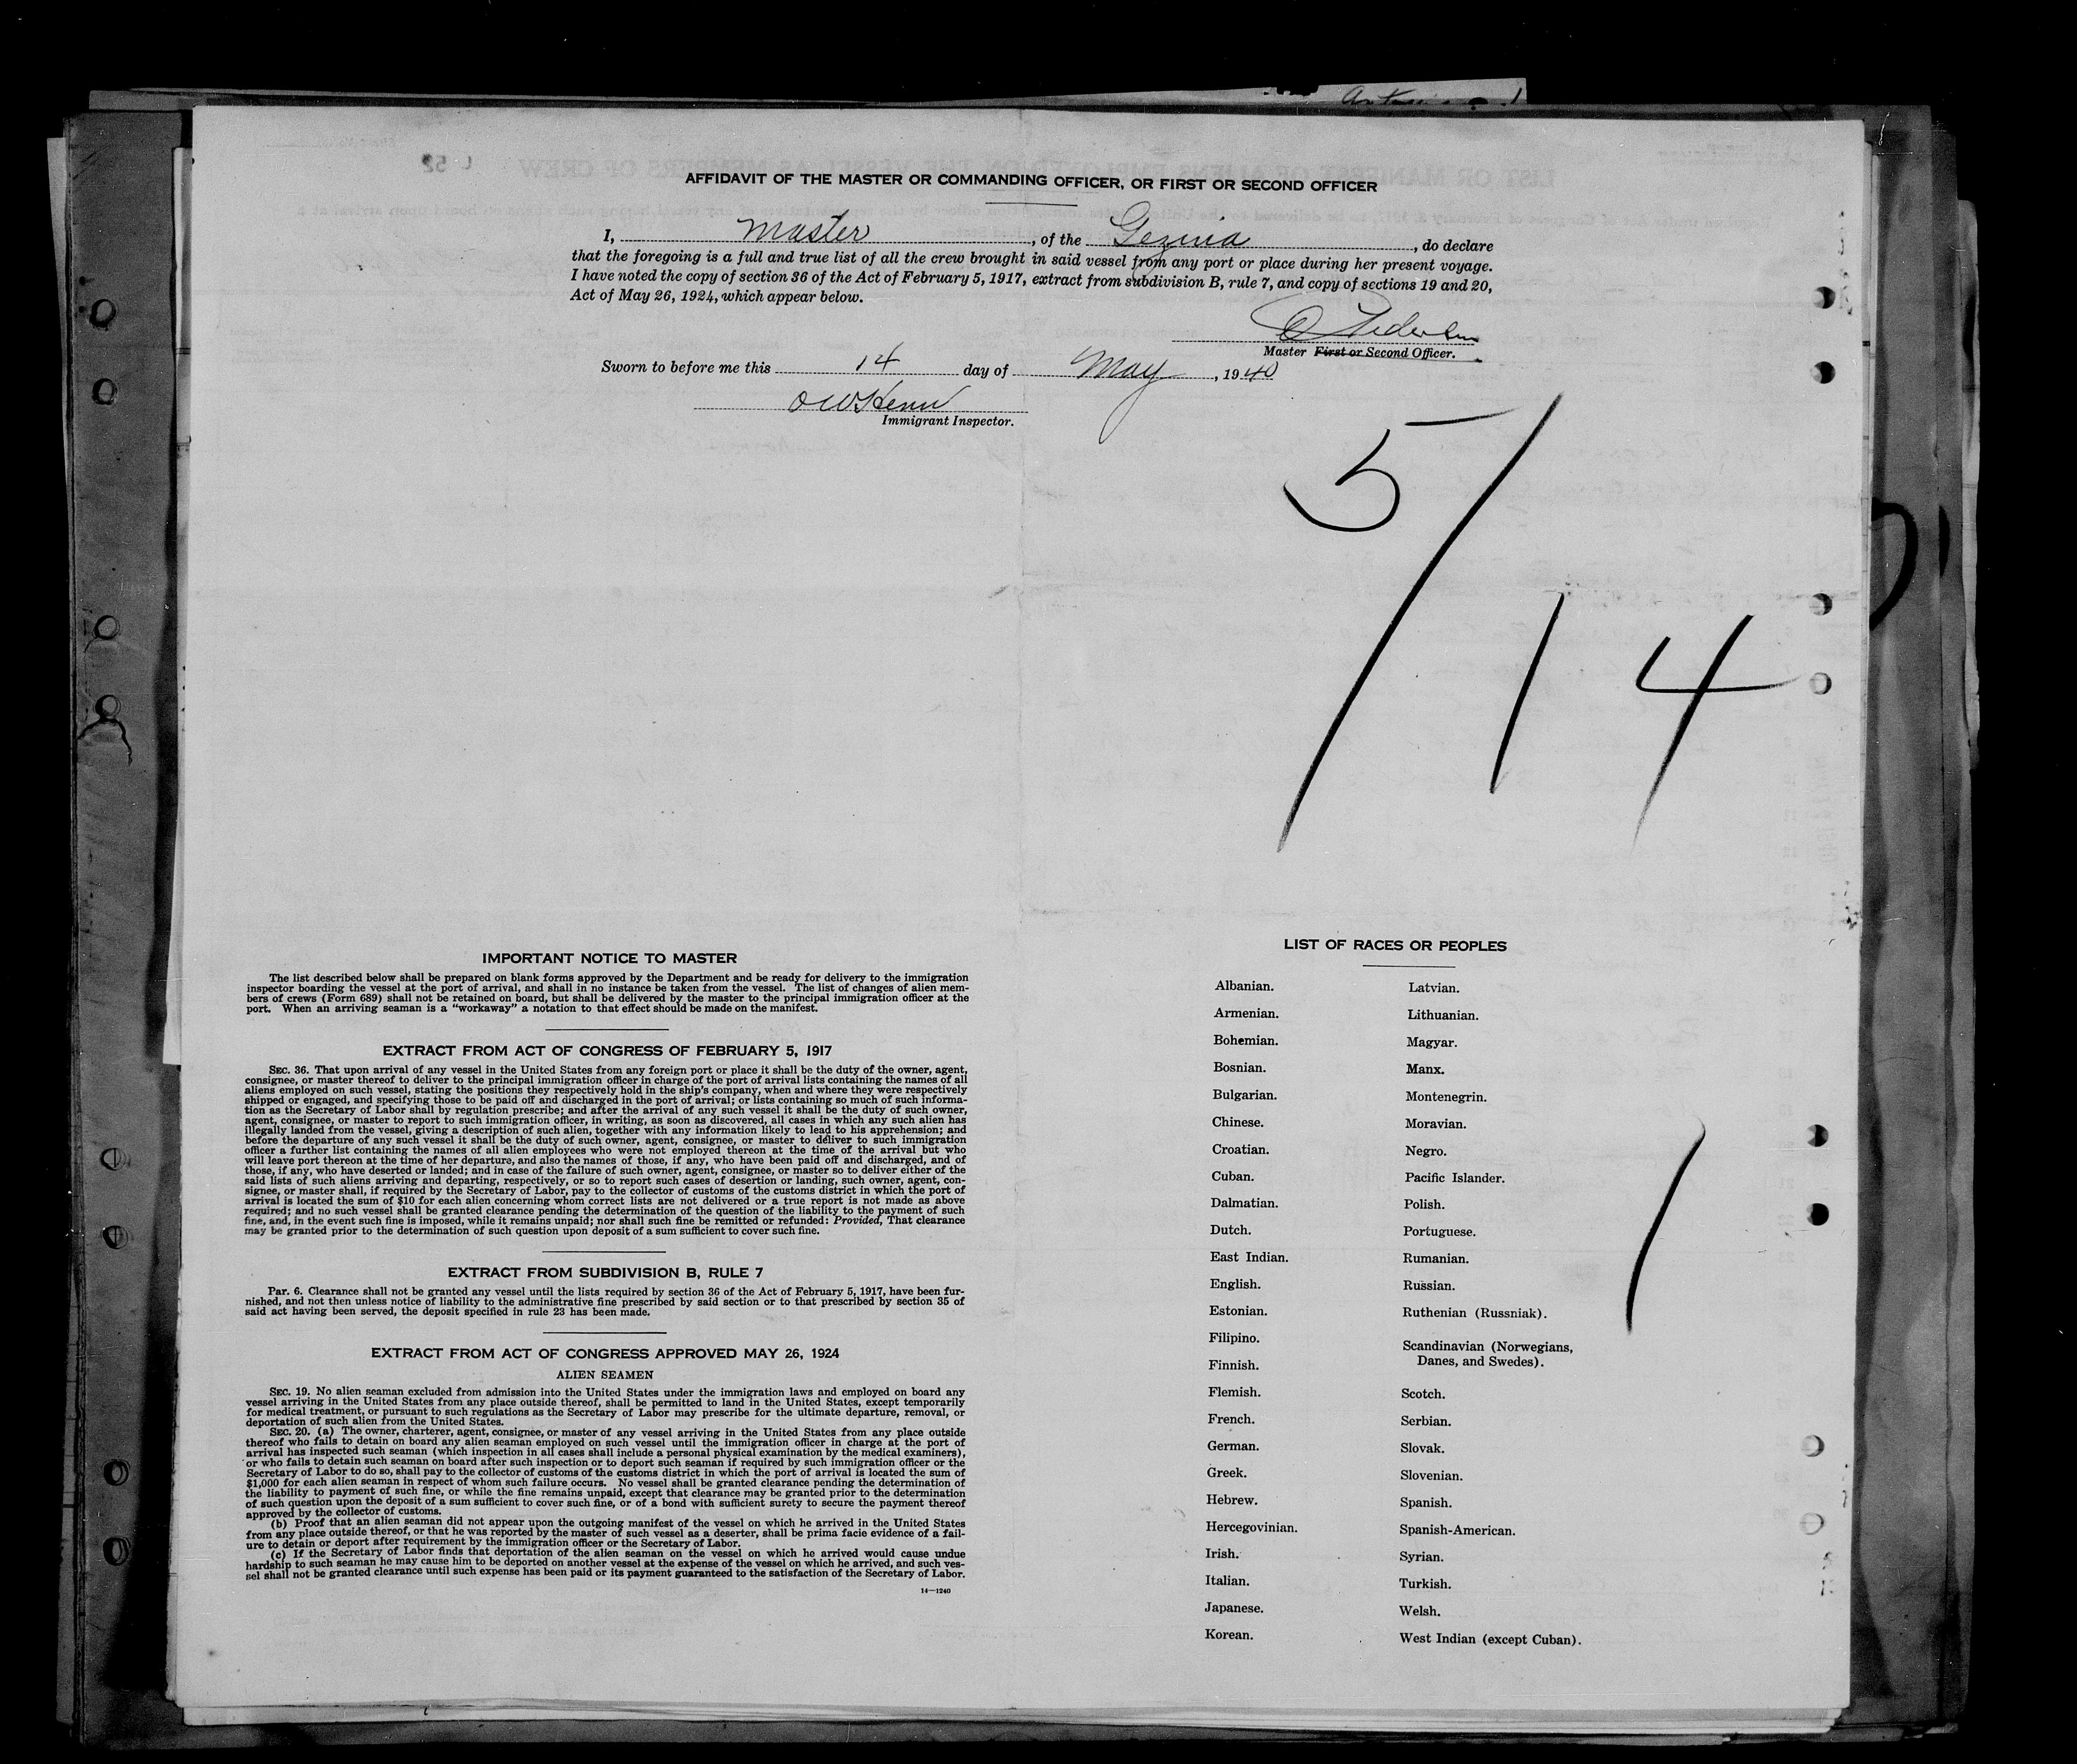 AFFIDAVIT OF THE MASTER OR COMMANDING OFFICER, OR FIRST OR SECOND OFFICER
I, Master, of the Gezina, do declare
that the foregoing is a full and true list of all the crew brought in said vessel from any port or place during her present voyage.
I have noted the copy of section 36 of the Act of February 5, 1917, extract from subdivision B, rule 7, and copy of sections 19 and 20,
Act of May 26, 1924, which appear below.
Pedersen
Master First or Second Officer.
Sworn to before me this 14 day of May, 1940
Immigrant Inspector.
5/14
IMPORTANT NOTICE TO MASTER
The list described below shall be prepared on blank forms approved by the Department and be ready for delivery to the immigration
inspector boarding the vessel at the port of arrival, and shall in no instance be taken from the vessel. The list of changes of alien mem-
bers of crews (Form 689) shall not be retained on board, but shall be delivered by the master to the principal immigration officer at the
port. When an arriving seaman is a "workaway" a notation to that effect should be made on the manifest.
EXTRACT FROM ACT OF CONGRESS OF FEBRUARY 5, 1917
SEC. 36. That upon arrival of any vessel in the United States from any foreign port or place it shall be the duty of the owner, agent,
consignee, or master thereof to deliver to the principal immigration officer in charge of the port of arrival lists containing the names of all
aliens employed on such vessel, stating the positions they respectively hold in the ship's company, when and where they were respectively
shipped or engaged, and specifying those to be paid off and discharged in the port of arrival; or lists containing so much of such informa-
tion as the Secretary of Labor shall by regulation prescribe; and after the arrival of any such vessel it shall be the duty of such owner,
agent, consignee, or master to report to such immigration officer, in writing, as soon as discovered, all cases in which any such alien has
illegally landed from the vessel, giving a description of such alien, together with any information likely to lead to his apprehension; and
before the departure of any such vessel it shall be the duty of such owner, agent, consignee, or master to deliver to such immigration
officer a further list containing the names of all alien employees who were not employed thereon at the time of the arrival but who
will leave port thereon at the time of her departure, and also the names of those, if any, who have been paid off and discharged, and of
those, if any, who have deserted or landed; and in case of the failure of such owner, agent, consignee, or master so to deliver either of the
said lists of such aliens arriving and departing, respectively, or so to report such cases of desertion or landing, such owner, agent, con-
signee, or master shall, if required by the Secretary of Labor, pay to the collector of customs of the customs district in which the port of
arrival is located the sum of $10 for each alien concerning whom correct lists are not delivered or a true report is not made as above
required; and no such vessel shall be granted clearance pending the determination of the question of the liability to the payment of such
fine, and, in the event such fine is imposed, while it remains unpaid; nor shall such fine be remitted or refunded: Provided, That clearance
may be granted prior to the determination of such question upon deposit of a sum sufficient to cover such fine.
EXTRACT FROM SUBDIVISION B, RULE 7
Par. 6. Clearance shall not be granted any vessel until the lists required by section 36 of the Act of February 5, 1917, have been fur-
nished, and not then unless notice of liability to the administrative fine prescribed by said section or to that prescribed by section 35 of
said act having been served, the deposit specified in rule 23 has been made.
EXTRACT FROM ACT OF CONGRESS APPROVED MAY 26, 1924
ALIEN SEAMEN
SEC. 19. No alien seaman excluded from admission into the United States under the immigration laws and employed on board any
vessel arriving in the United States from any place outside thereof, shall be permitted to land in the United States, except temporarily
for medical treatment, or pursuant to such regulations as the Secretary of Labor may prescribe for the ultimate departure, removal, or
deportation of such alien from the United States.
SEC. 20. (a) The owner, charterer, agent, consignee, or master of any vessel arriving in the United States from any place outside
thereof who fails to detain on board any alien seaman employed on such vessel until the immigration officer in charge at the port of
arrival has inspected such seaman (which inspection in all cases shall include a personal physical examination by the medical examiners),
or who fails to detain such seaman on board after such inspection or to deport such seaman if required by such immigration officer or the
Secretary of Labor to do so, shall pay to the collector of customs of the customs district in which the port of arrival is located the sum of
$1,000 for each alien seaman in respect of whom such failure occurs. No vessel shall be granted clearance pending the determination of
the liability to payment of such fine, or while the fine remains unpaid, except that clearance may be granted prior to the determination
of such question upon the deposit of a sum sufficient to cover such fine, or of a bond with sufficient surety to secure the payment thereof
approved by the collector of customs.
(b) Proof that an alien seaman did not appear upon the outgoing manifest of the vessel on which he arrived in the United States
from any place outside thereof, or that he was reported by the master of such vessel as a deserter, shall be prima facie evidence of a fail-
ure to detain or deport after requirement by the immigration officer or the Secretary of Labor.
(c) If the Secretary of Labor finds that deportation of the alien seaman on the vessel on which he arrived would cause undue
hardship to such seaman he may cause him to be deported on another vessel at the expense of the vessel on which he arrived, and such ves-
sel shall not be granted clearance until such expense has been paid or its payment guaranteed to the satisfaction of the Secretary of Labor.
14—1240
LIST OF RACES OR PEOPLES
Albanian.
Armenian.
Bohemian.
Bosnian.
Bulgarian.
Chinese.
Croatian.
Cuban.
Dalmatian.
Dutch.
East Indian.
English.
Estonian.
Filipino.
Finnish.
Flemish.
French.
German.
Greek.
Hebrew.
Hercegovinian.
Irish.
Italian.
Japanese.
Korean.
Latvian.
Lithuanian.
Magyar.
Manx.
Montenegrin.
Moravian.
Negro.
Pacific Islander.
Polish.
Portuguese.
Rumanian.
Russian.
Ruthenian (Russniak).
Scandinavian (Norwegians,
Danes, and Swedes).
Scotch.
Serbian.
Slovak.
Slovenian.
Spanish.
Spanish-American.
Syrian.
Turkish.
Welsh.
West Indian (except Cuban).